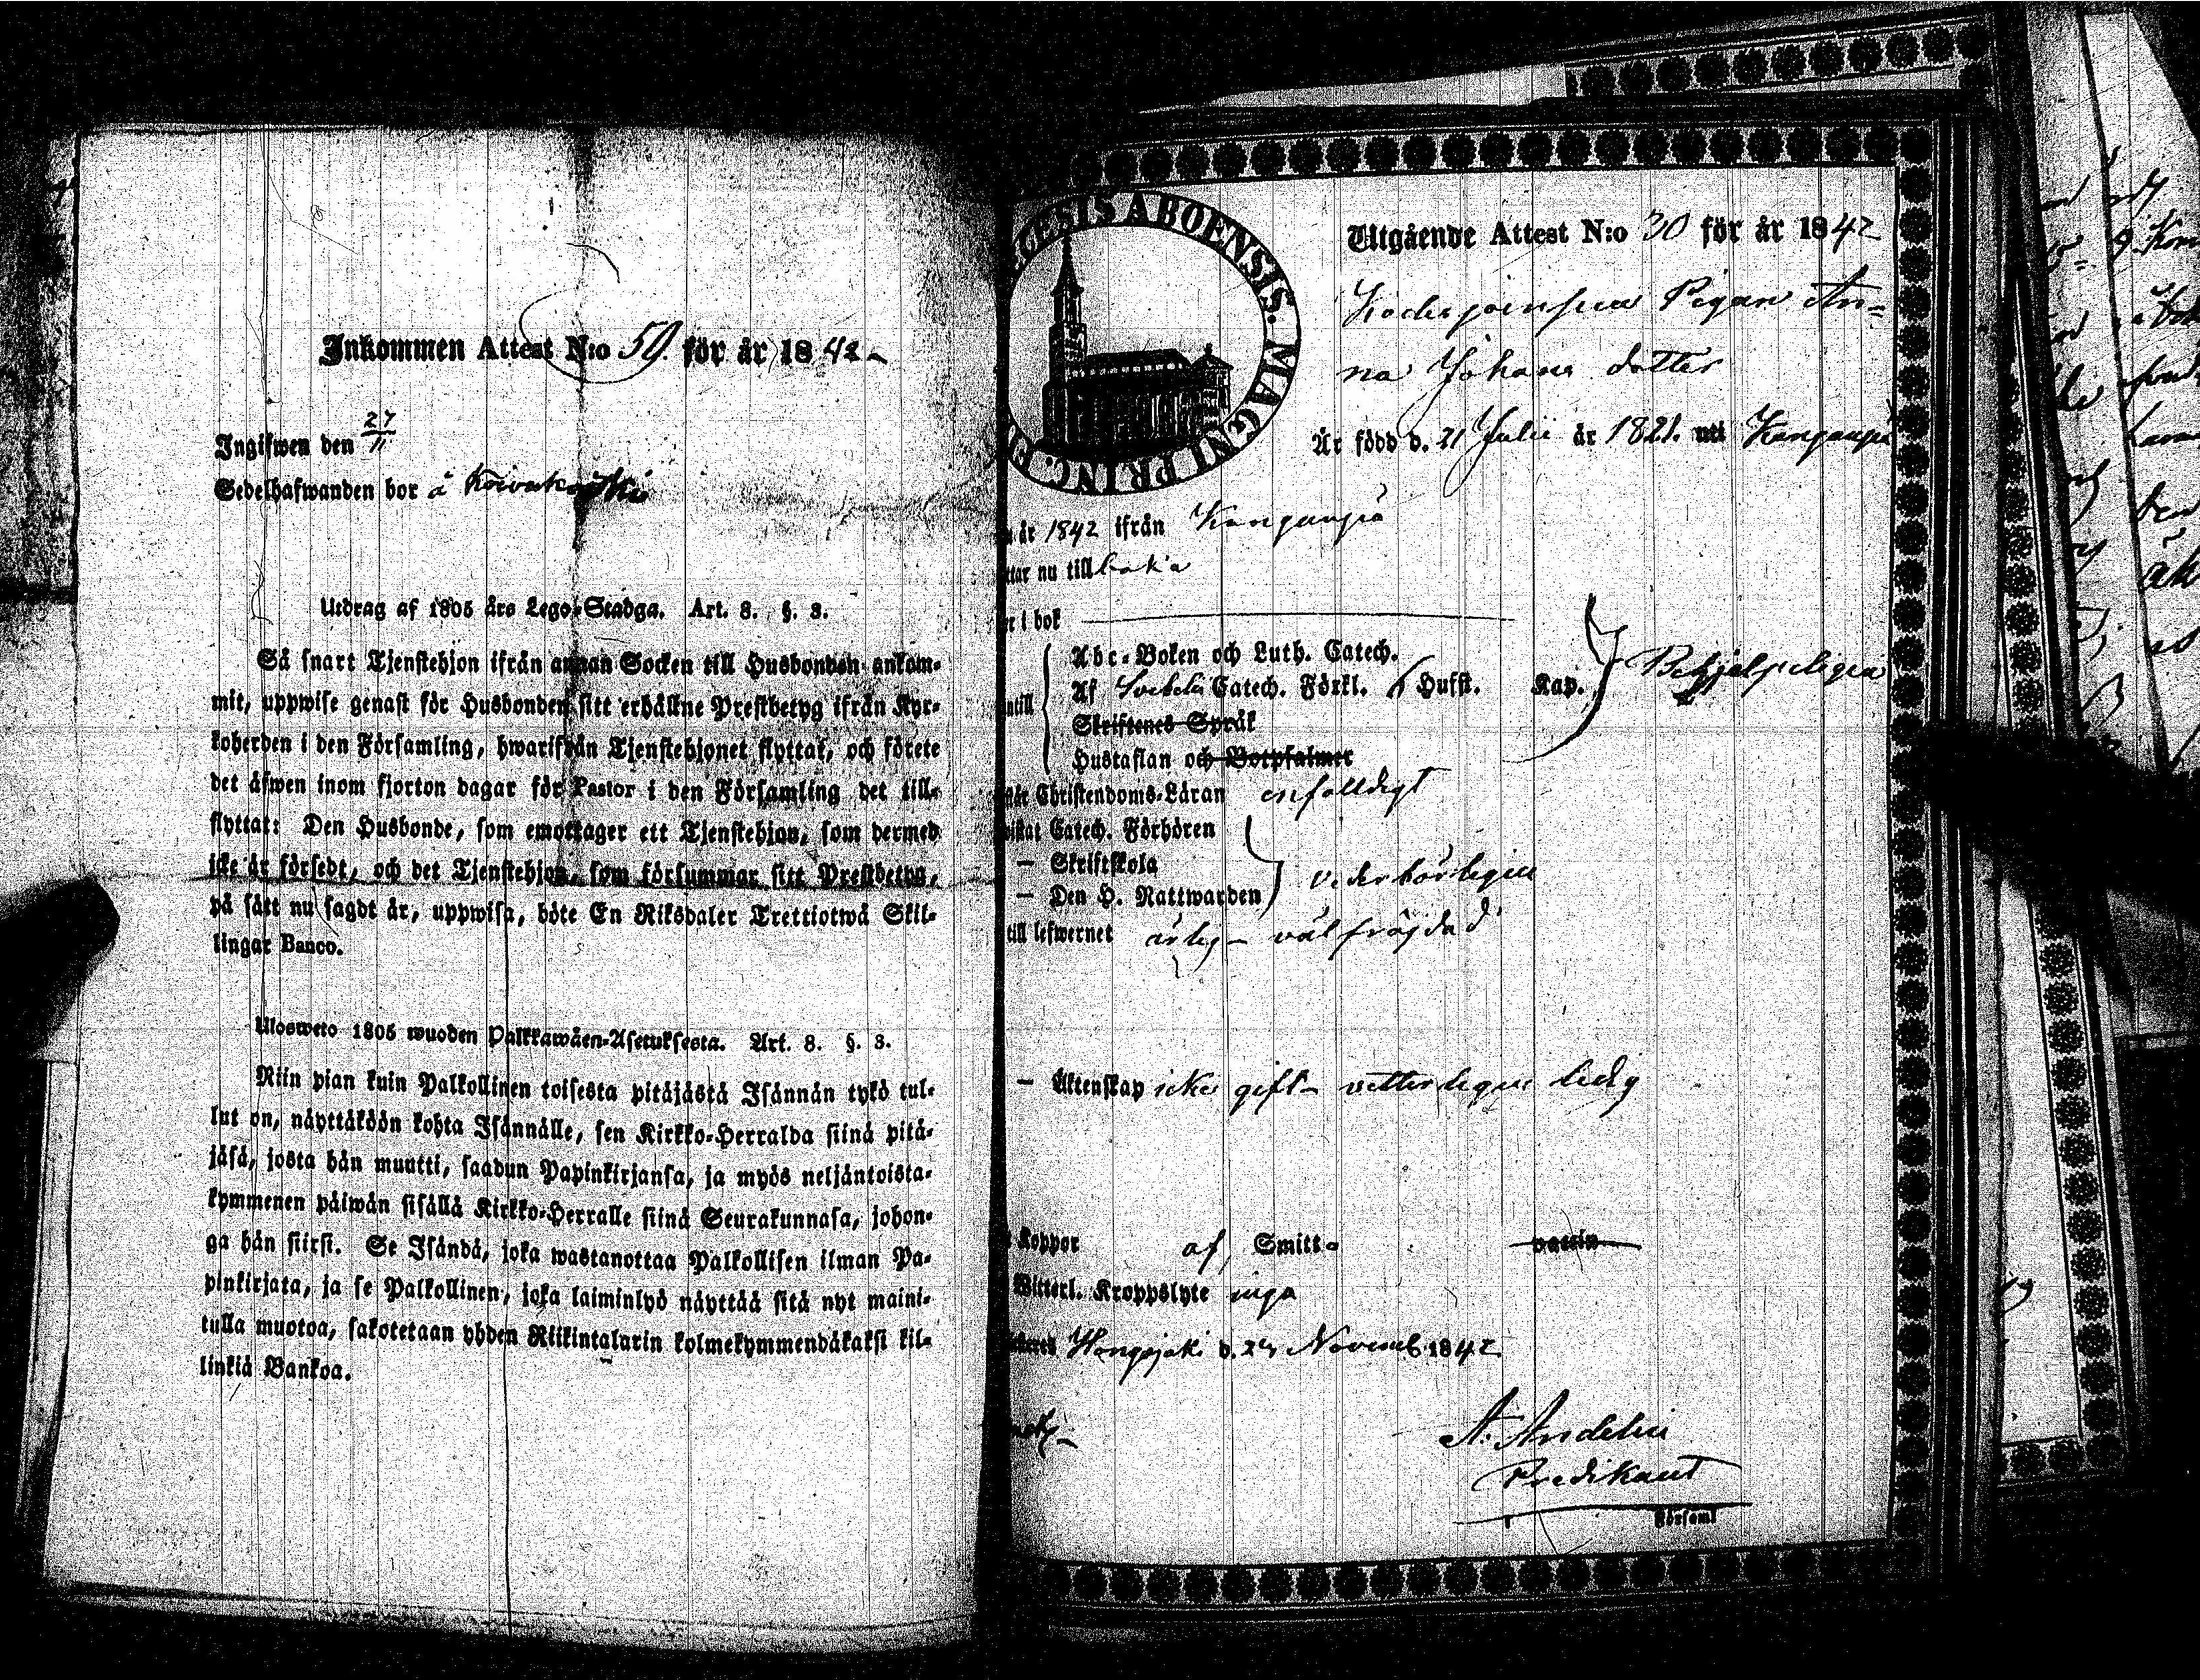 Inkommen Attest N:o 59. för år 1842
Ingifwen den 27/11
Sedelhafwanden bor å Koivukoski
Utdrag af 1805 års Lego-Stadga. Art. 8. §. 3.
Så snart Tjenstehjon ifrån annan Socken till Husbonden ankom-
mit, uppwise genast för Husbonden sitt erhållne Prestbetyg ifrån Kyr-
koherden i den Församling, hwarifrån Tjenstehjonet flyttat, och förete
det äfwen inom fjorton dagar för Pastor i den Församling det till-
flyttat: Den Husbonde, som emottager ett Tjenstehjon, som dermed
icke är försedt, och det Tjenstehjon, som försummar sitt Prestbetyg,
på sätt nu sagdt är, uppwisa, böte En Riksdaler Trettiotwå Skil-
lingar Banco.
Ulosweto 1805 wuoden Palkkawäen-Asetuksesta. Art. 8. §. 3.
Niin pian kuin Palkollinen toisesta pitäjästä Isännän tykö tul-
lut on, näyttäköön kohta Isännälle, sen Kirkko-Herralda siinä pitä-
jäsä, josta hän muutti, saadun Papinkirjansa, ja myös neljäntoista-
kymmenen päiwän sisällä Kirkko-Herralle siinä Seurakunnasa, johon-
ga hän siirsi. Se Isändä, joka wastanottaa Palkollisen ilman Pa-
pinkirjata, ja se Palkollinen, joka laiminlyö näyttää sitä nyt maini-
tulla muotoa, sakotetaan yhden Riikintalarin kolmekymmendäkaksi kil-
linkiä Bankoa.
ABOENSIS. MAGNI PRINC.
Utgående Attest N:o 30 för år 1842
Pigan An-
na Johans dotter
Är född d. 21 Julii år 1821. uti Kanganpä
år 1842 ifrån Kanganpä
nu tillbaka
i bok
Abc-Boken och Luth. Catech.
Af Catech. Förkl. 6 Hufst. Kap. Behjelpeligen
Skriftenes Språk
Hustaflan och Botpsalmer
Christendoms-Läran enfaldigt
Catech. Förhören
— Skriftskola
— Den H. Nattwarden vederbörligen
till lefwernet ärlig - välfräjdad
— Äktenskap icke gift - vetterligen ledig
koppor af Smitt-
vaccin
Witterl. Kroppslyte inga
Hongojoki d. 24 Novemb. 1842
A: Andelin
Predikant
Församl